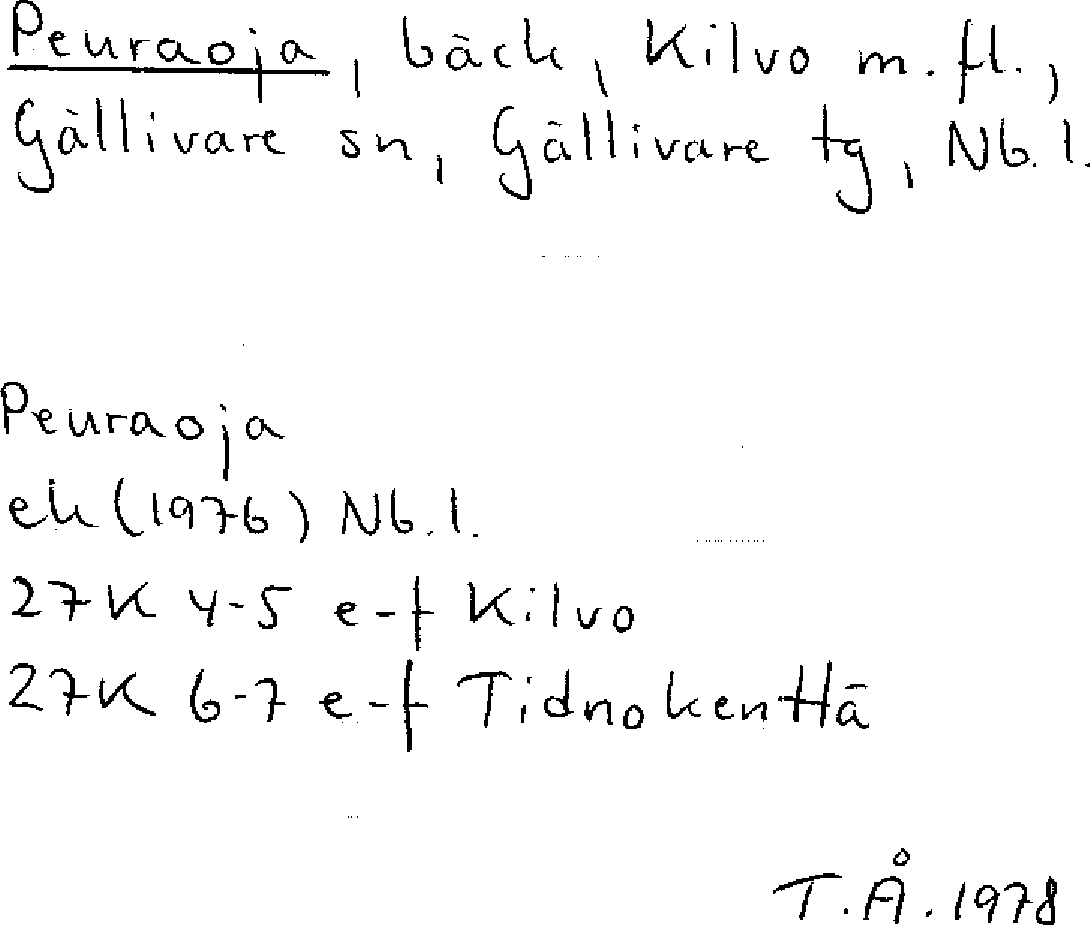 Peuraoja, bäck, Kilvo m. fl.,
Gällivare sn, Gällivare tg, Nb. l.
Peuraoja
ek (1976) Nb. l.
27K 4-5 e-f Kilvo
27K 6-7 e-f Tidnokenttä
T.Å. 1978